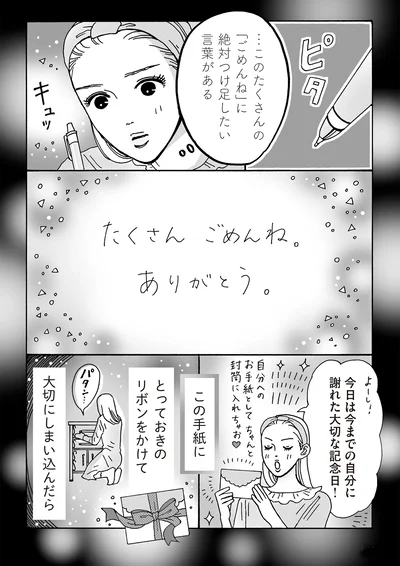 ピタ
…このたくさんの
「ごめんね」に
絶対つけ足したい
言葉がある
キュッ
たくさん ごめんね。
ありがとう。
よーし!
今日は今までの自分に
謝れた大切な記念日!
自分へのお手紙として ちゃんと
封筒に入れちゃお♡
この手紙に
とっておきの
リボンをかけて
大切にしまい込んだら
パタン…